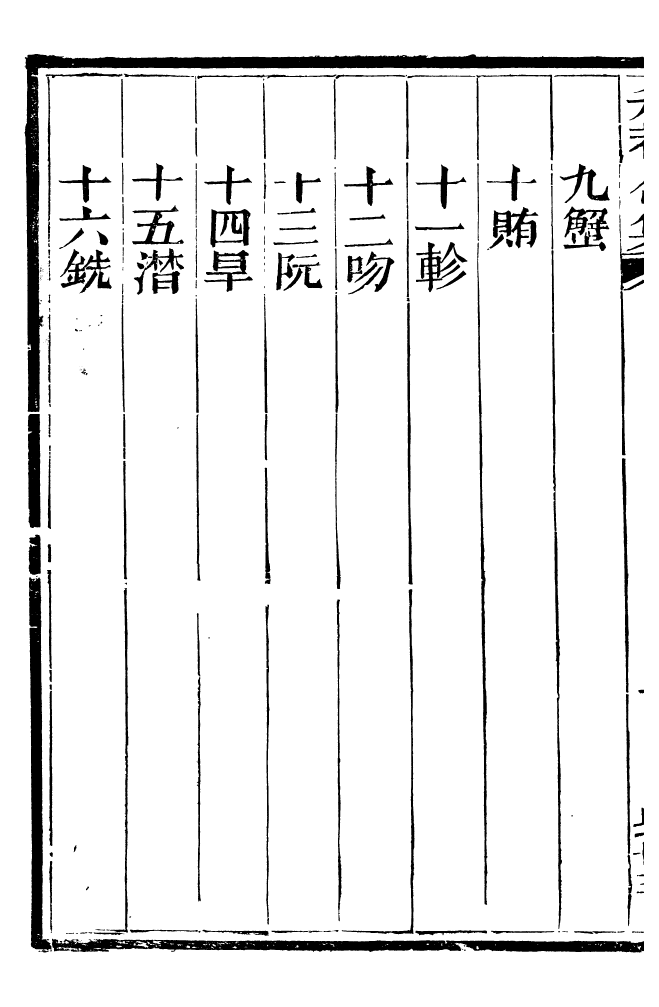 九蟹
十賄
十一軫
十二吻
十三阮
十四旱
十五潸
十六銑